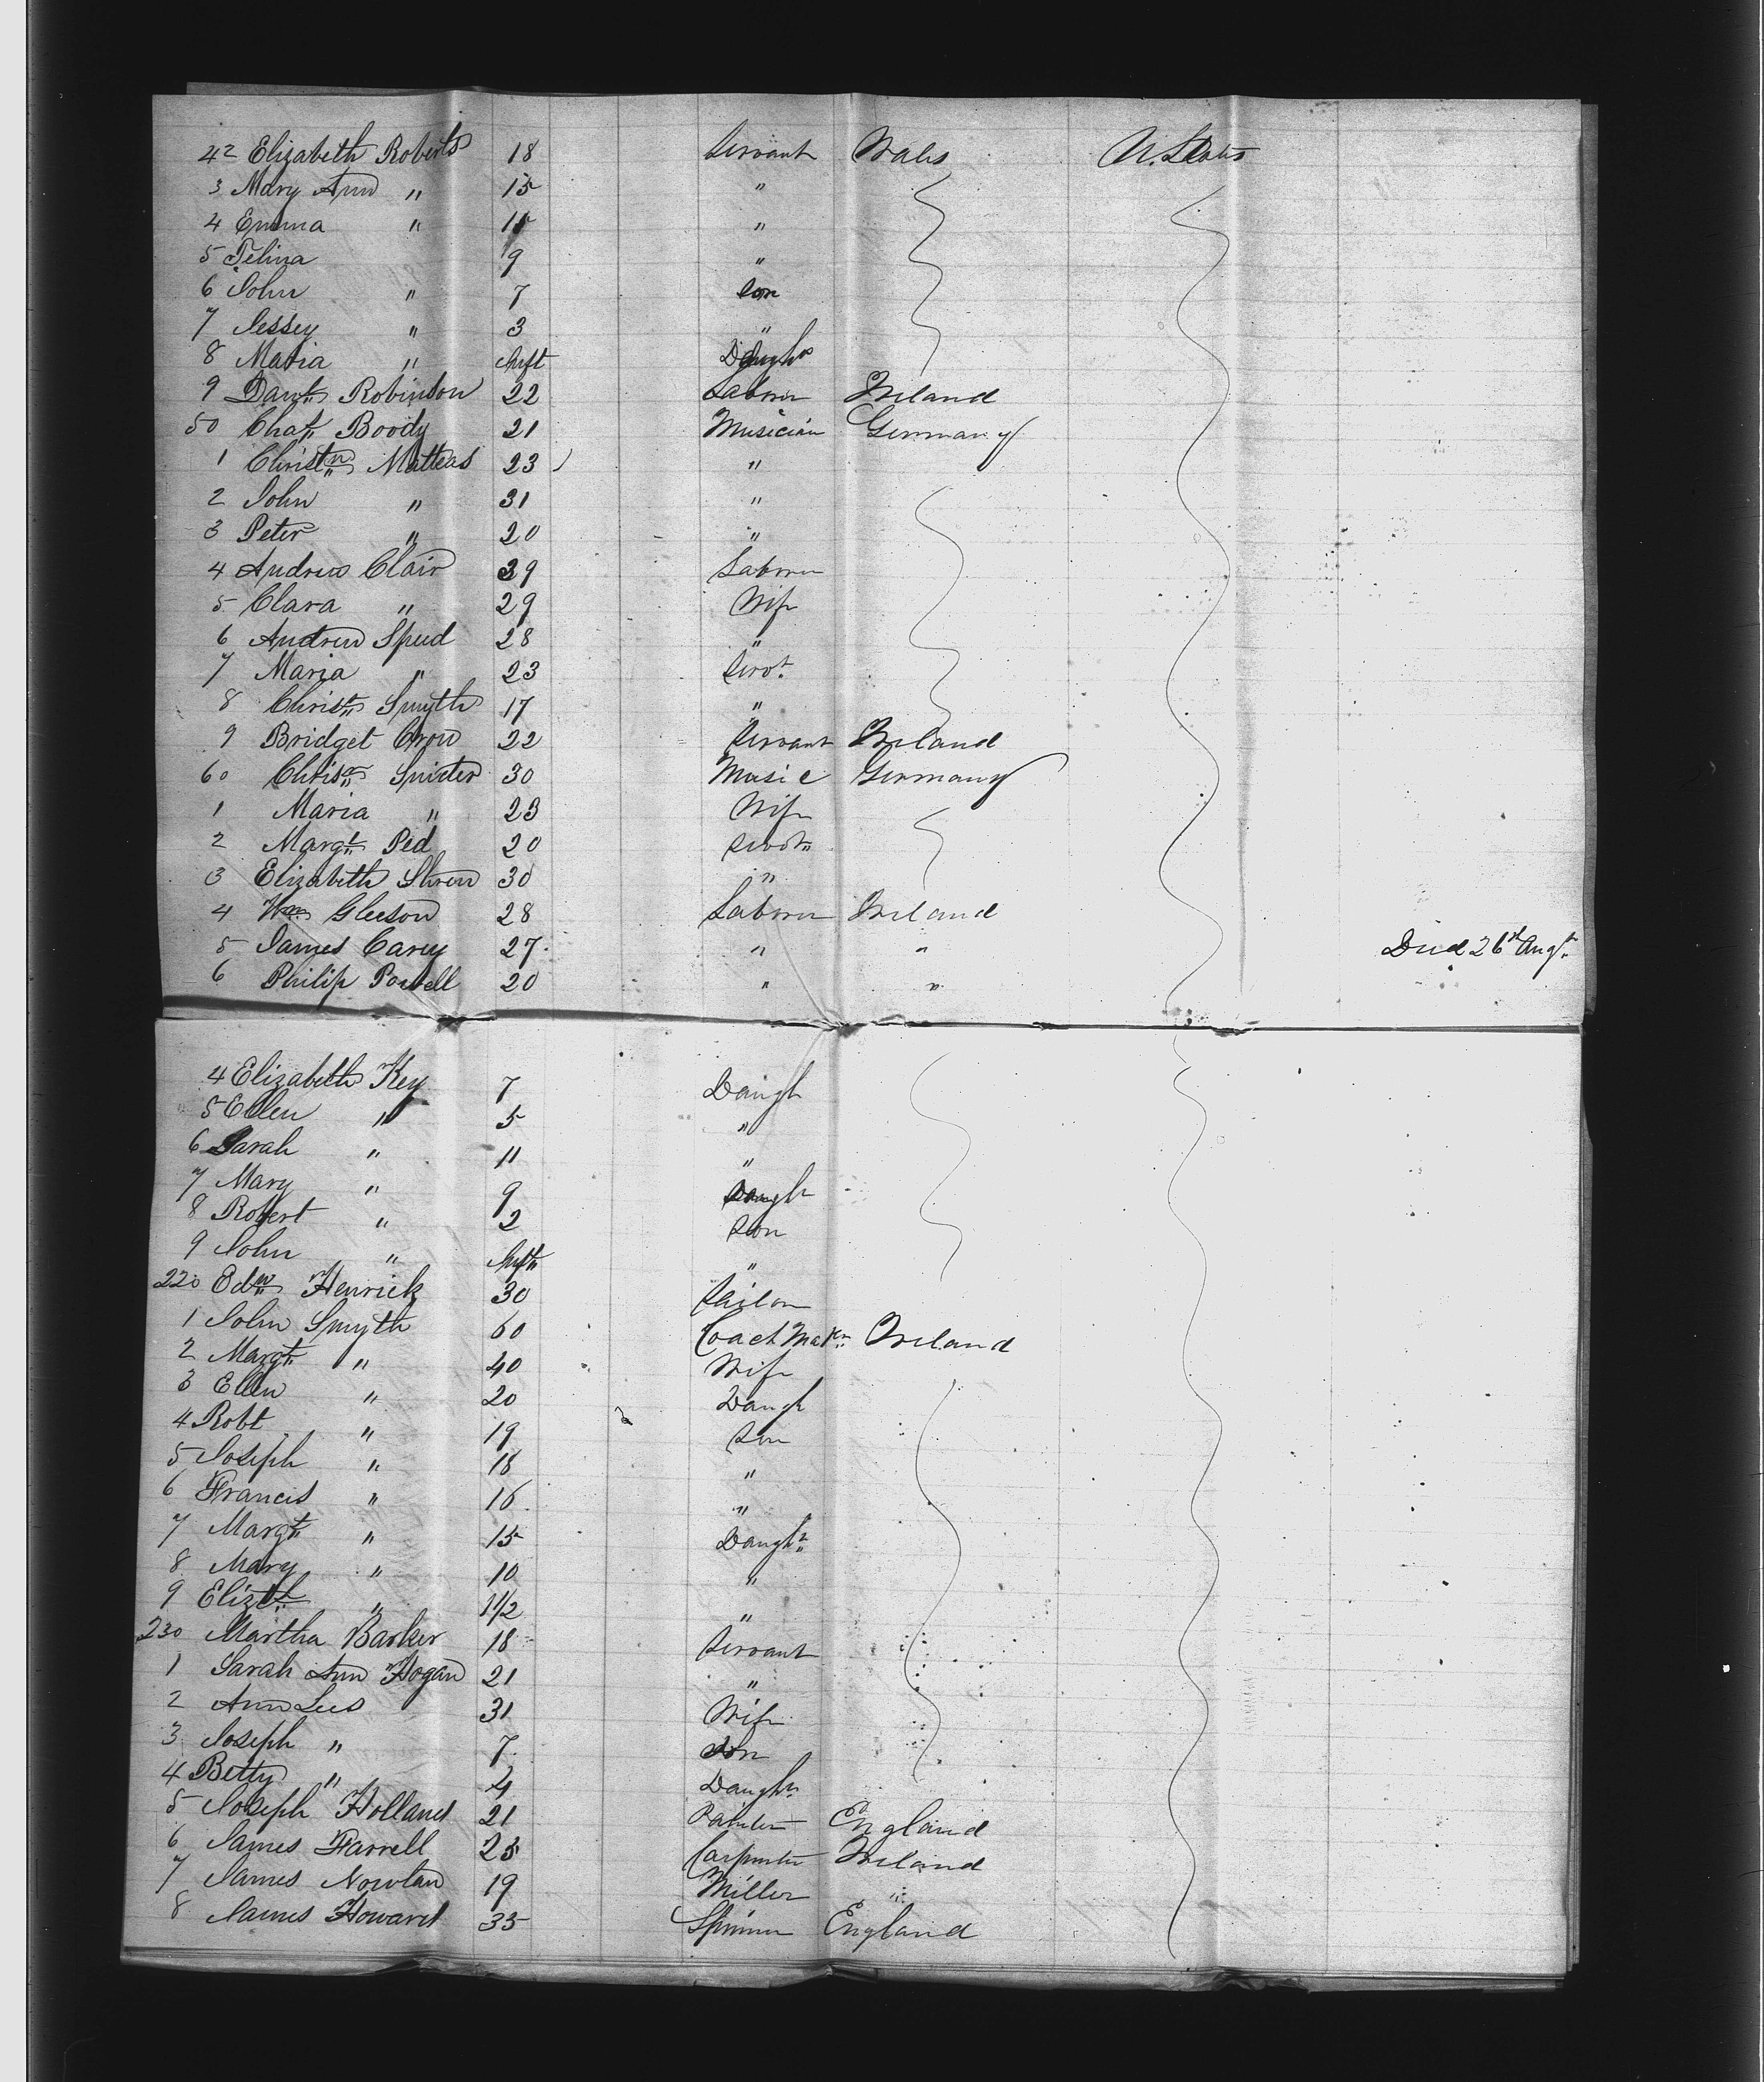 42 Elizabeth Roberts 18 Servant Wales U. States
3 Mary Ann " 15 "
4 Emma " "
5 Telina 9 "
6 John " 7 Son
7 Jessey " 3 "
8 Maria " Inft Daugh
9 Danl Robinson 22 Laborer Ireland
50 Chas Boody 21 Musician Germany
1 Christn Matteas 23 "
2 John " 31 "
3 Peter " 20 "
4 Andrew Clair 39 Laborer
5 Clara " 29 Wife
6 Andrew Speed 28 "
7 Maria " 23 Servt
8 Christn Smyth 17 "
9 Bridget Crow 22 Servant Ireland
60 Chrisn Snister 30 Music Germany
1 Maria " 23 Wife
2 Margt Ped 20 Servt
3 Elizabeth Shren 30 "
4 Wm Gleeson 28 Laborer Ireland
5 James Carey 27 " " Died 26th Augt
6 Philip Powell 20 " "
4 Elizabeth Key 7 Daugh
5 Ellen " 5 "
6 Sarah " 11 "
7 Mary " 9 Daugh
8 Robert " 2 Son
9 John " Inft "
220 Edwd Henrick 30 Tailor
1 John Smyth 60 Coach Maker Ireland
2 Margt " 40 Wife
3 Ellen " 20 Daugh
4 Robt " 19 Son
5 Joseph " 18 "
6 Francis " 16 "
7 Margt " 15 Daughr
8 Mary " 10 "
9 Elizth " 1 1/2 "
230 Martha Barker 18 Servant
1 Sarah Ann Hogan 21 "
2 Ann Lees 31 Wife
3 Joseph " 7 Son
4 Betty " 4 Daughr
5 Joseph Holland 21 Painter England
6 James Farrell 25 Carpenter Ireland
7 James Nowlan 19 Miller "
8 James Howard 35 Spinner England